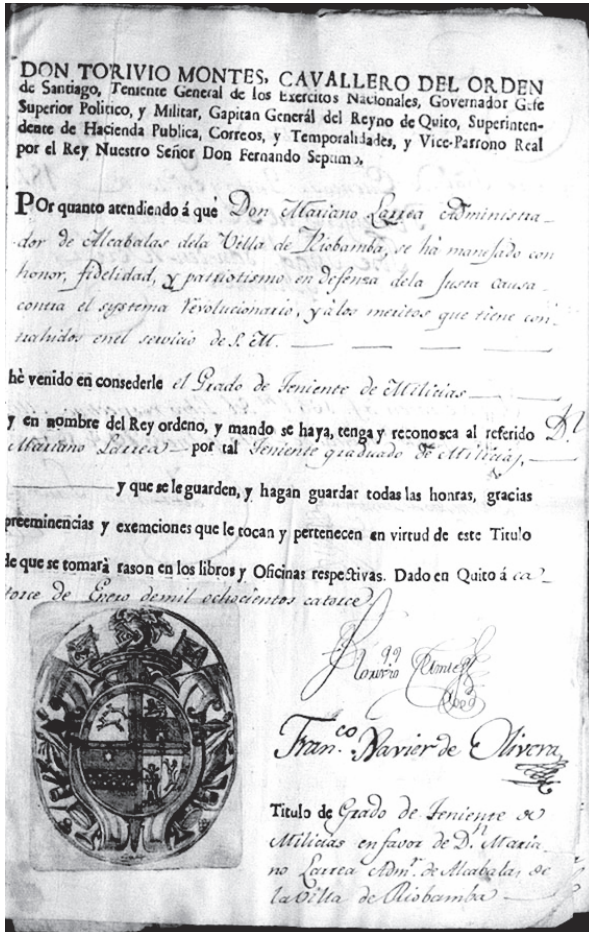 DON TORIVIO MONTES, CAVALLERO DEL ORDEN
de Santiago, Teniente General de los Exercitos Nacionales, Governador Gefe
Superior Politico, y Militar, Gapitan Generál del Reyno de Quito, Superinten-
dente de Hacienda Publica, Correos, y Temporalidades, y Vice-Patrono Real
por el Rey Nuestro Señor Don Fernando Septimo,
POr quanto atendiendo á què Don Mariano Larrea Administra-
dor de Alcabalas dela Villa de Riobamba, se há manejado con
honor, fidelidad, y patriotismo en defenza dela Justa causa
contra el systema revolucionario, y álos meritos que tiene con-
trahidos enel servicio de S. M.
hè venido en consederle el Grado de Teniente de Milicias
y en nombre del Rey ordeno, y mando se haya, tenga y reconosca al referido Dn
Mariano Larrea por tal Teniente graduado de Milicias,
y que se le guarden, y hagan guardar todas las honras, gracias
preeminencias y exemciones que le tocan y pertenecen en virtud de este Titulo
de que se tomarà rason en los libros y Oficinas respectivas. Dado en Quito á ca-
torce de Enero demil ochocientos catorce
Torivio Montes
Franco Xavier de Olivera
Titulo de Grado de Teniente de
Milicias en favor de Dn Maria-
no Larrea Admr. de Alcabalas de
la Villa de Riobamba